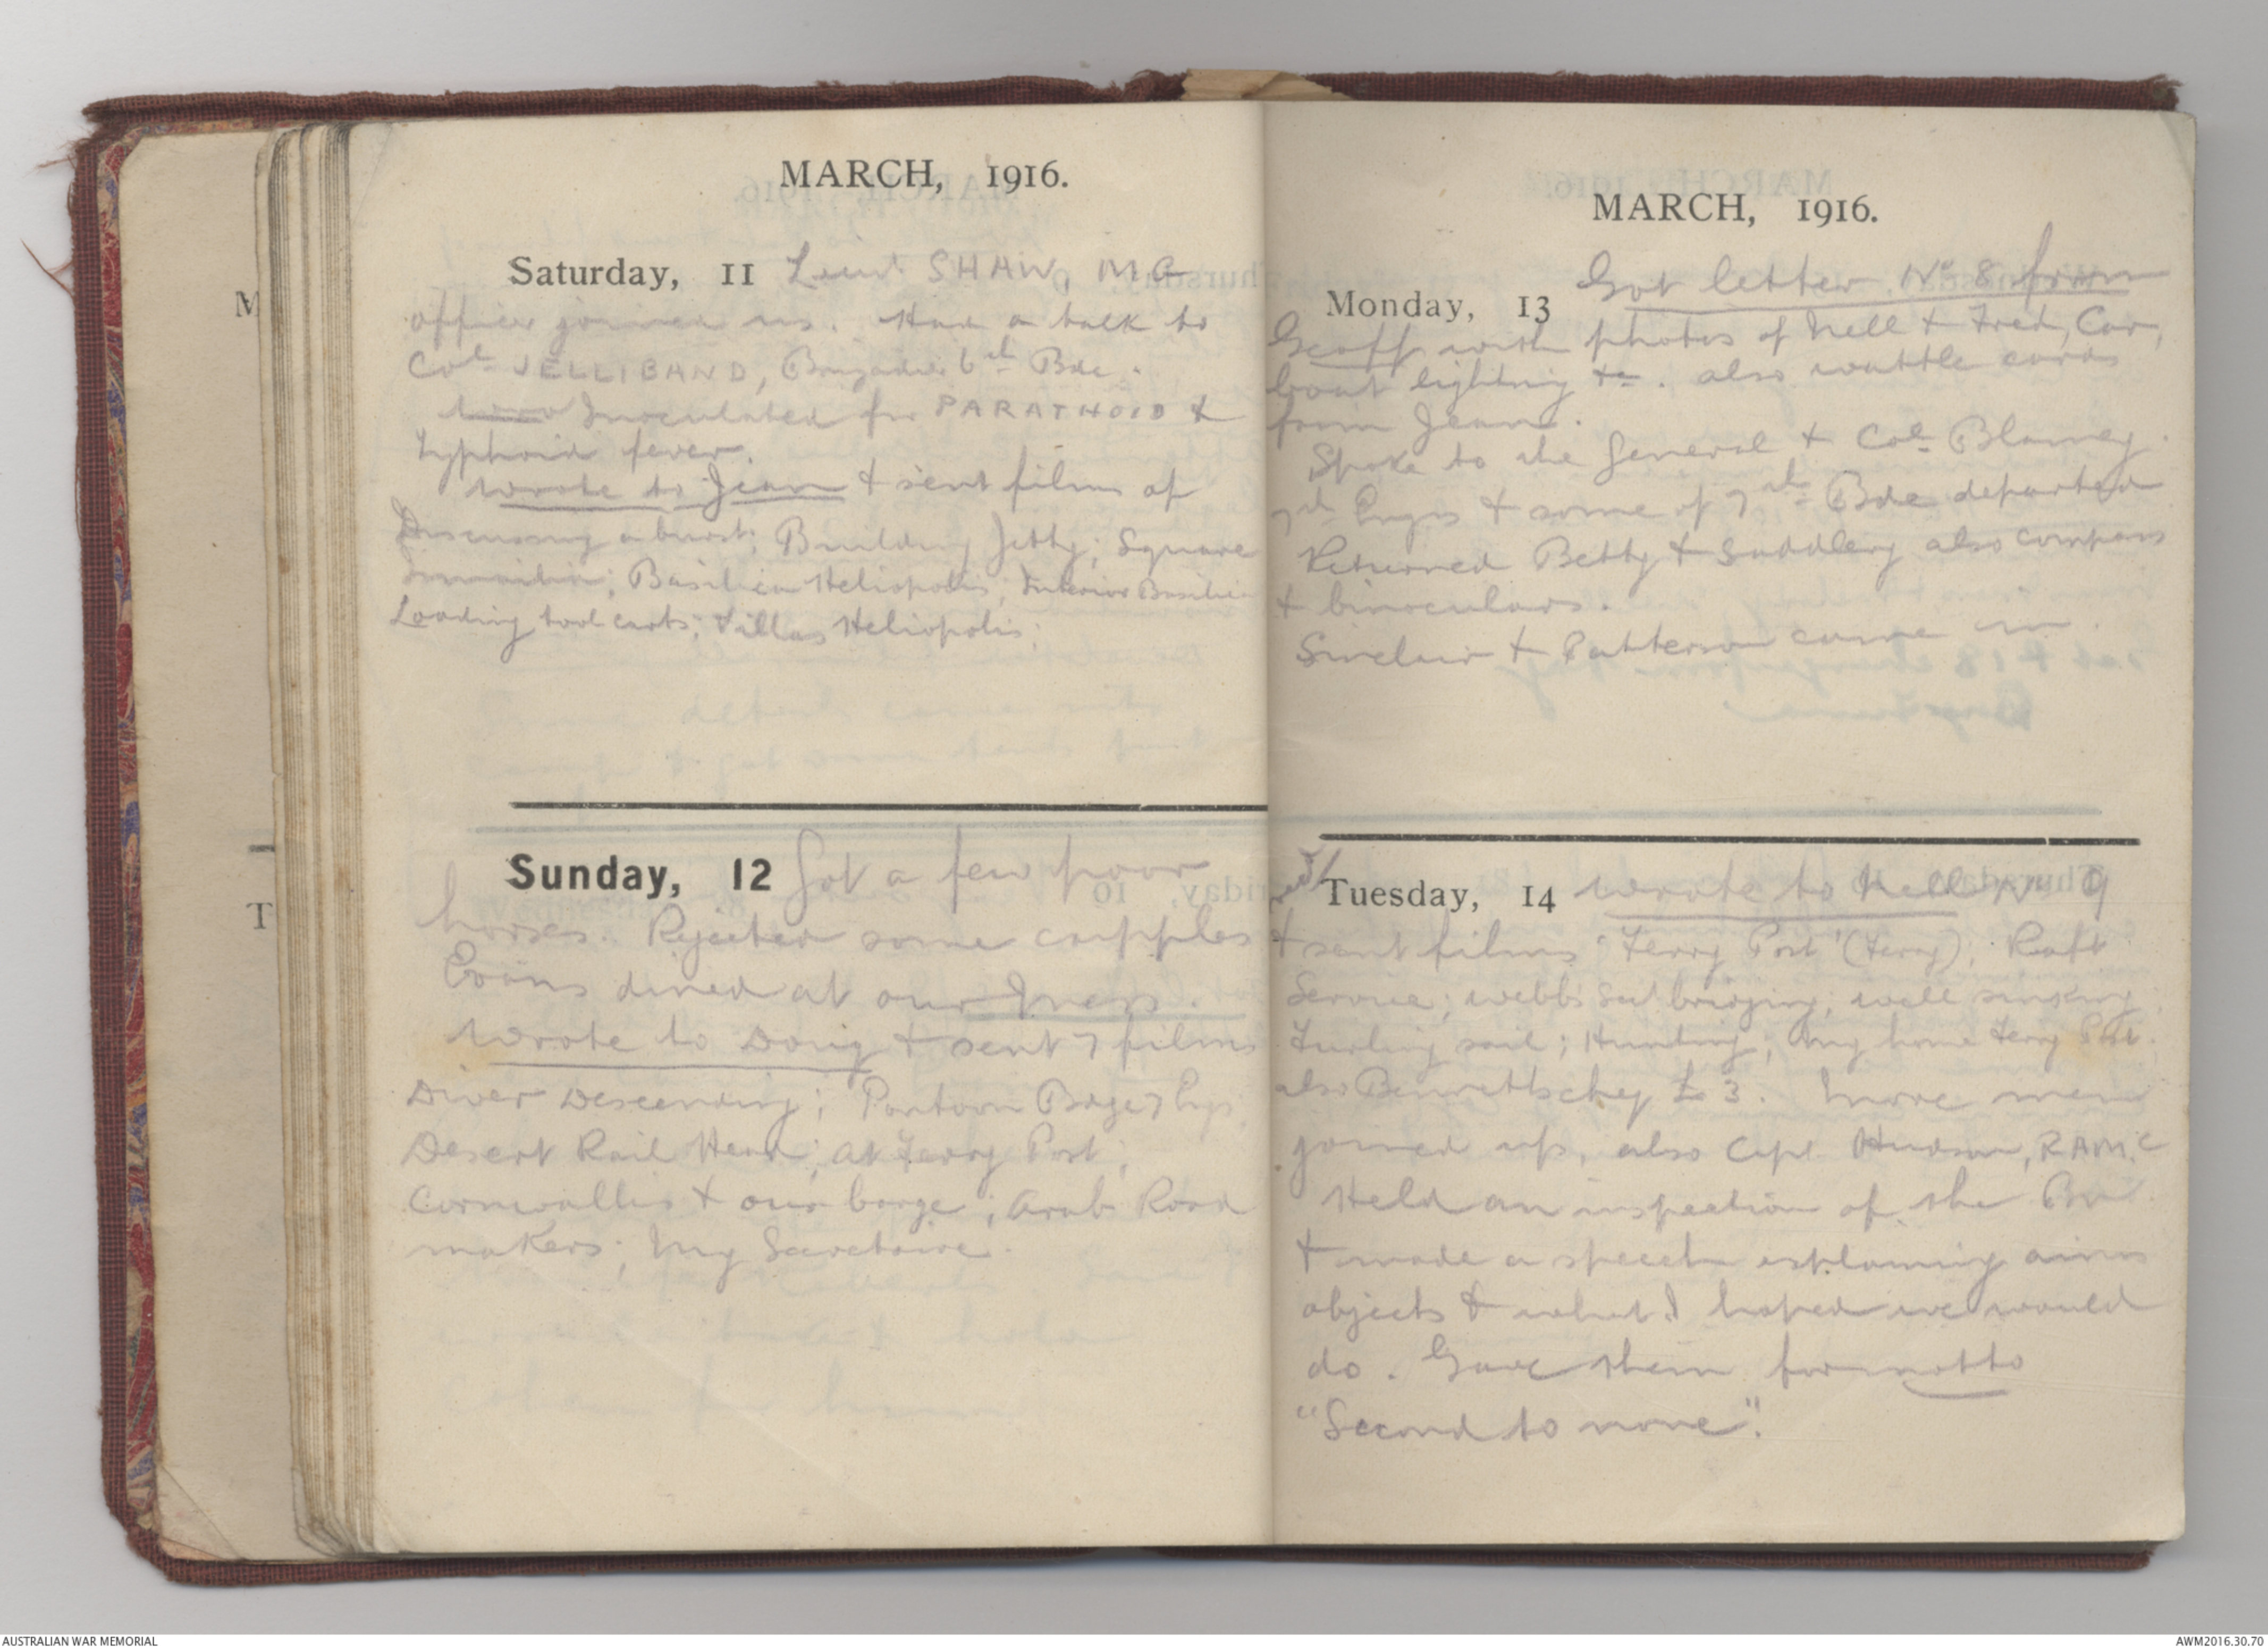 MARCH, 1916.
Saturday, 11 Lieut SHAW, MG
officer joined us. Had a talk to
Col JELLIBAND, Brigadier 6th Bde.
Inoculated for PARATHOID &
Typhoid fever.
Wrote to Jean & sent films of
Discussing a burst; Building Jetty; Square
Ismailia; Basilica Heliopolis; Interior Basilica
Loading tool carts; Villas Heliopolis;
Sunday, 12 Got a few poor
horses. Rejected some cripples
Evans dined at our Mess.
Wrote to Doug & sent 7 films
Diver Descending; Pontoon Bdge 7 Engs
Desert Rail Head; at Ferry Post;
Cornwallis & our barge; Arab Road
makers; My Secretaire.
MARCH, 1916.
Monday, 13 Got letter No 8 from
Geoff with photos of Nell & Fred, Car,
boat lighting &c. also wattle cards
from Jean.
Spoke to the General & Col. Blamey.
7th Engrs & some of 7th Bde departed
Returned Betty & Saddlery also compass
& binoculars.
Sinclair & Patterson came in.
Tuesday, 14 Wrote to Nell No 9
& sent films 'Ferry Post' (Ferry); Raft
Service; Webb's bridging; well sinking
Furling sail; Hunting; My home Ferry Post.
also Bennetts chq £3. More men
joined up, also Capt Hudson, RAMC
Held an inspection of the Bn
& made a speech explaining aims
objects & what I hoped we would
do. Gave them for motto
"Second to none".
M
T
AUSTRALIAN WAR MEMORIAL
AWM2016.30.70